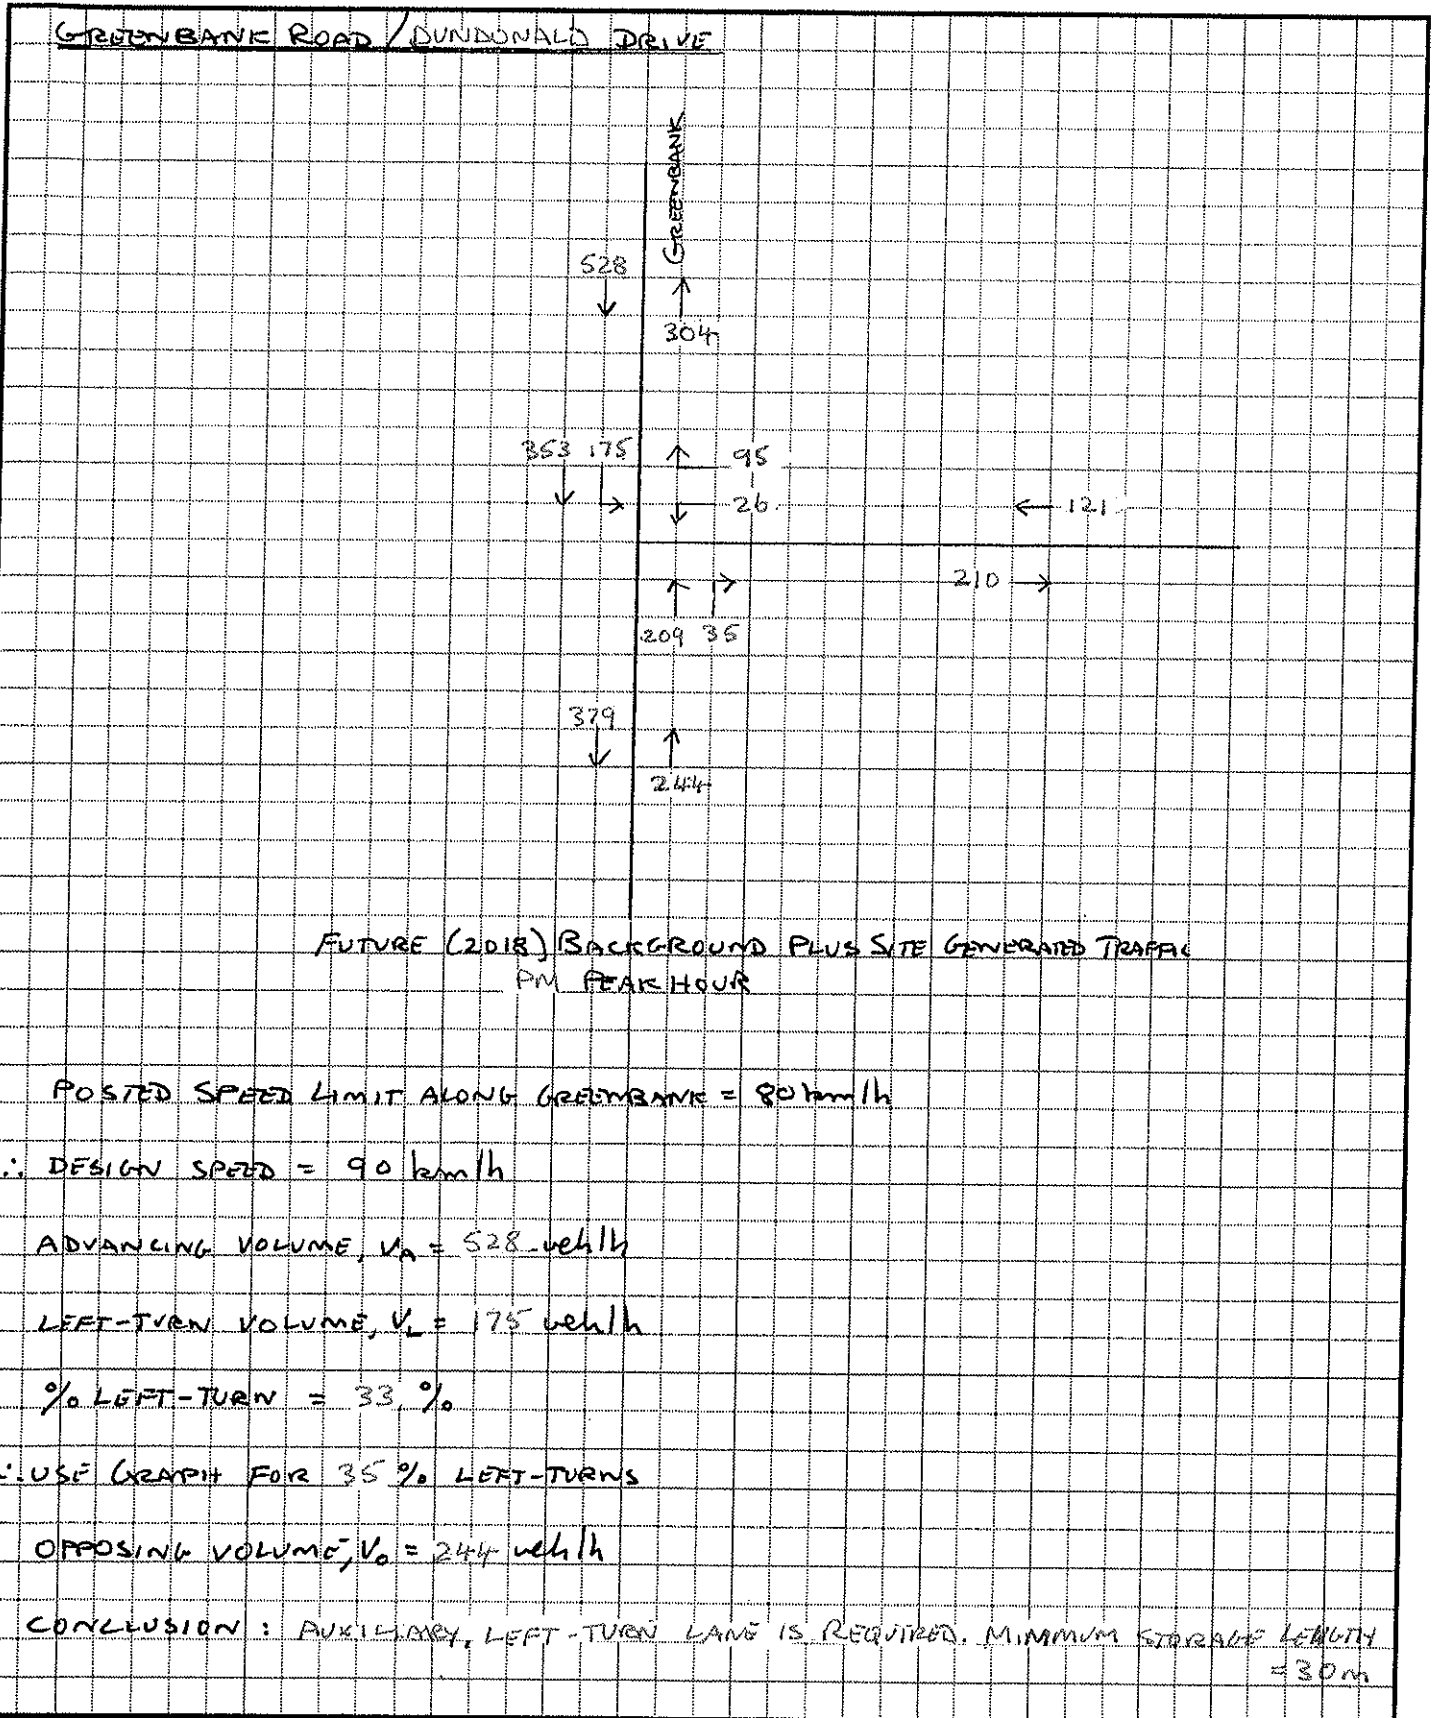 GREENBANK ROAD / DUNDONALD DRIVE
GREENBANK
528
304
353 175
95
26
121
210
209 35
379
244
FUTURE (2018) BACKGROUND PLUS SITE GENERATED TRAFFIC
PM PEAK HOUR
POSTED SPEED LIMIT ALONG GREENBANK = 80 km/h
∴ DESIGN SPEED = 90 km/h
ADVANCING VOLUME, VA = 528 veh/h
LEFT-TURN VOLUME, VL = 175 veh/h
% LEFT-TURN = 33 %
∴ USE GRAPH FOR 35 % LEFT-TURNS
OPPOSING VOLUME, Vo = 244 veh/h
CONCLUSION : AUXILIARY LEFT-TURN LANE IS REQUIRED. MINIMUM STORAGE LENGTH
= 30 m